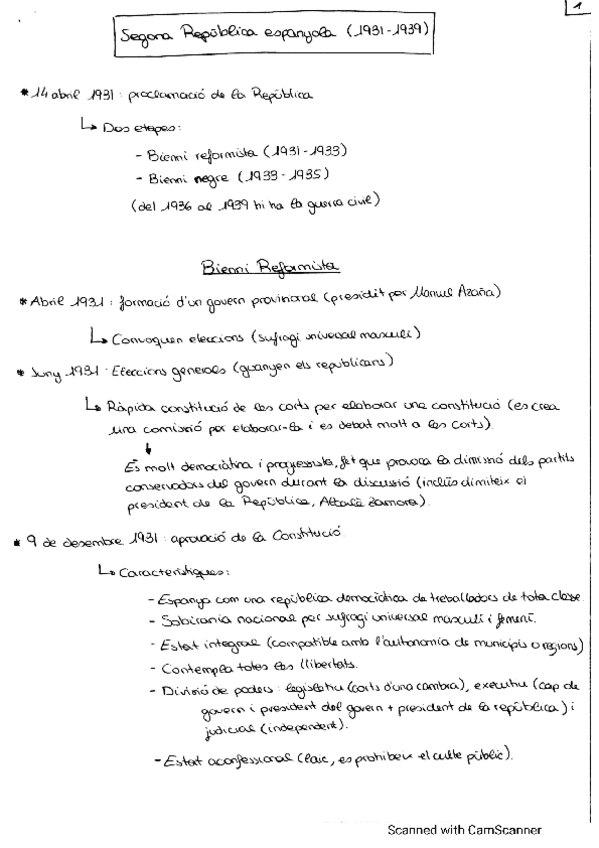 1
Segona República espanyola (1931-1939)
* 14 abril 1931: proclamació de la República
↳ Dos etapes:
- Bienni reformista (1931-1933)
- Bienni negre (1933-1935)
(del 1936 al 1939 hi ha la guerra civil)
Bienni Reformista
* Abril 1931: formació d'un govern provisional (presidit per Manuel Azaña)
↳ Convoquen eleccions (sufragi universal masculí)
* Juny 1931: Eleccions generals (guanyen els republicans)
↳ Ràpida constitució de les corts per elaborar una constitució (es crea
una comissió per elaborar-la i es debat molt a les Corts).
↓
És molt democràtica i progressista, fet que provoca la dimissió dels partits
conservadors del govern durant la discussió (inclús dimiteix el
president de la República, Alcalà Zamora).
* 9 de desembre 1931: aprovació de la Constitució
↳ Característiques:
- Espanya com una república democràtica de treballadors de tota classe.
- Sobirania nacional per sufragi universal masculí i femení.
- Estat integral (compatible amb l'autonomia de municipis o regions)
- Contempla totes les llibertats.
- Divisió de poders: legislatiu (corts d'una cambra), executiu (cap de
govern i president del govern + president de la república) i
judicial (independent).
- Estat aconfessional (laic, es prohibeix el culte públic).
Scanned with CamScanner